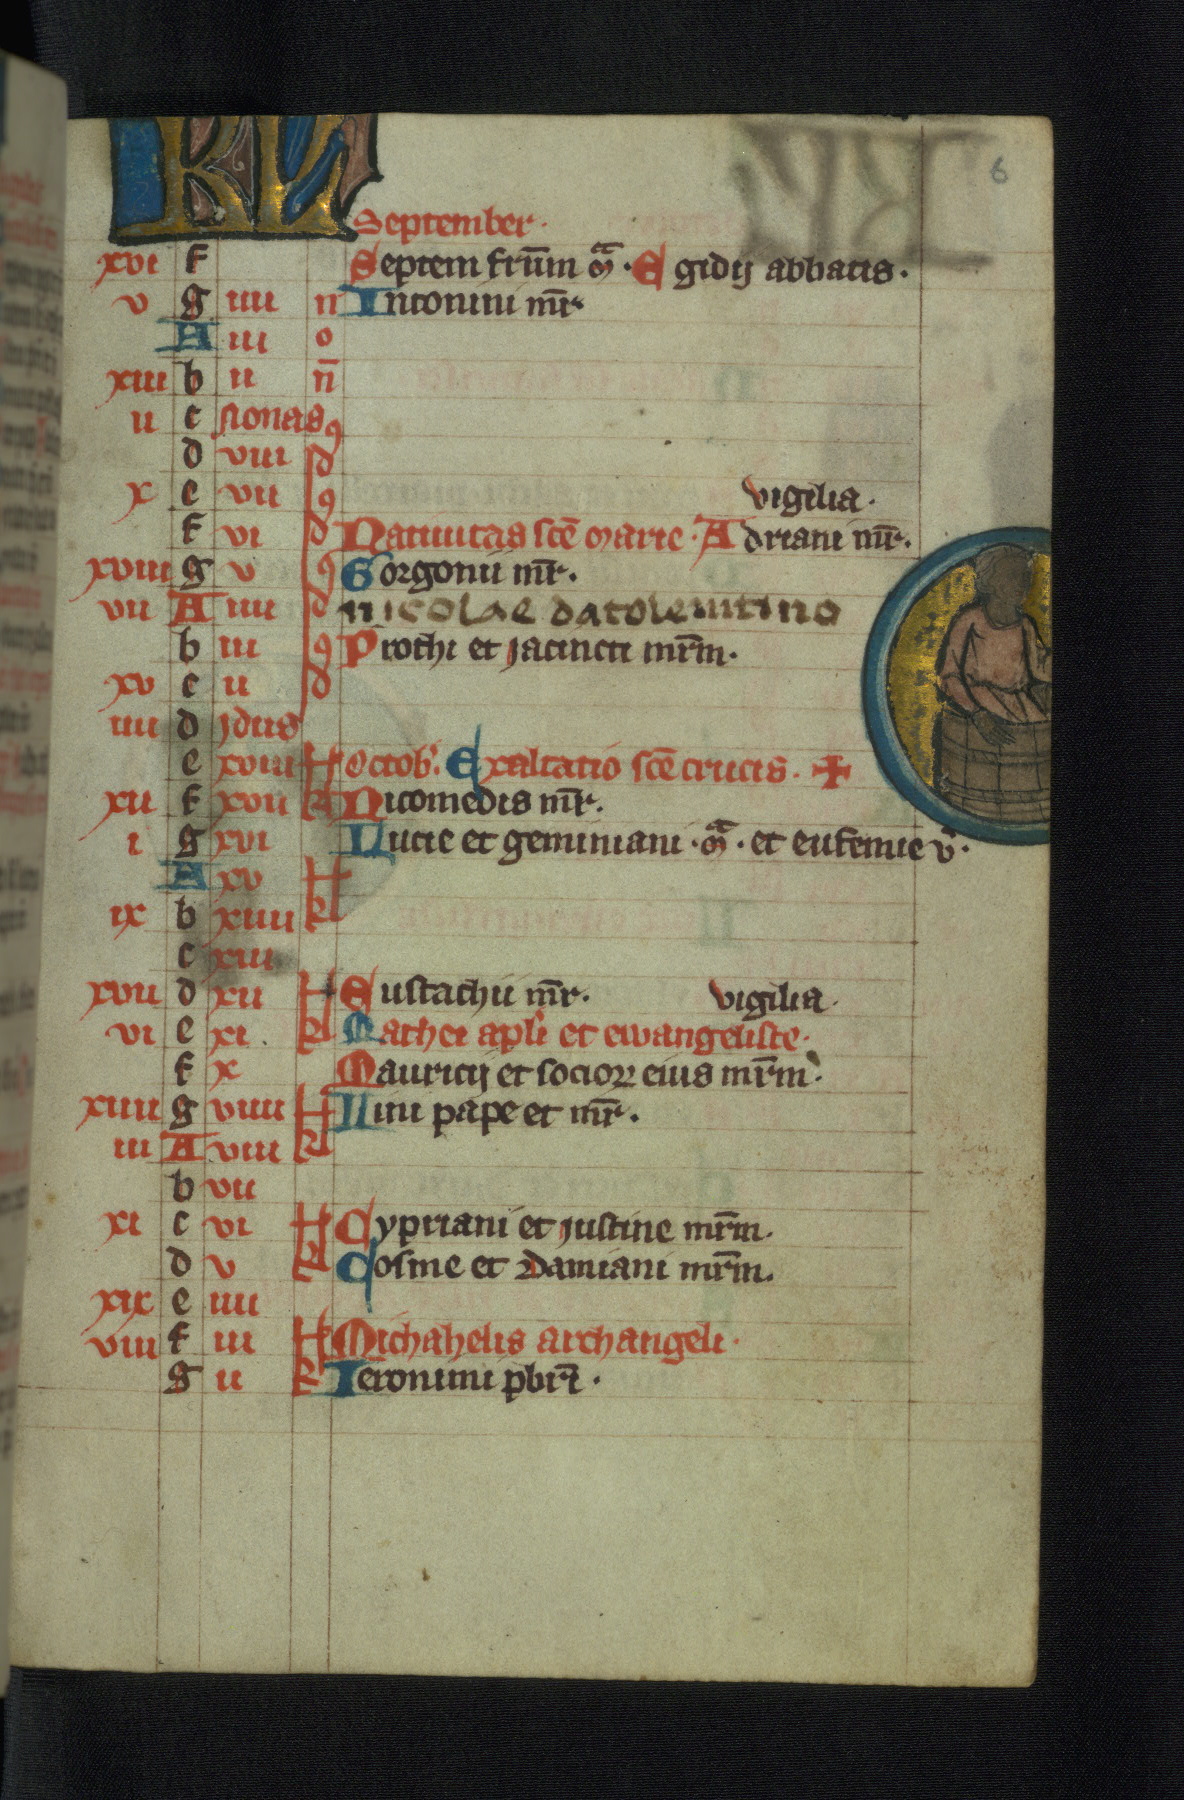 KL
6
September.
xvi f Septem frūm m̄. Egidij abbatis.
v g iiii n Antonini mr̄.
A iii o
xiii b ii n̄
ii c Nonas 9
d viii d
x e vii 9 vigilia.
f vi d Natiuitas scē marie. Adriani mr̄.
xviii g v 9 Gorgonii mr̄.
vii A iiii d nicolae datolentino
b iii 9 Prothi et jacincti mr̄m.
xv c ii d
iiii d jdus
e xviii k octob. Exaltatio scē crucis. +
xii f xvii Nicomedis mr̄.
i g xvi Lucie et geminiani. m̄. et eufemie v̄.
A xv k
ix b xiiii
c xiii
xvii d xii k Eustachii mr̄. vigilia.
vi e xi. Mathei apli et ewangeliste.
f x Mauricij et socioꝝ eius mr̄m.
xiiii g viiii k Lini pape et mr̄.
iii A viii
b vii
xi c vi k Cypriani et justine mr̄m.
d v Cosme et Damiani mr̄m.
xix e iiii
viii f iii k Michahelis archangeli.
g ii Ieronimi pb̄ri.